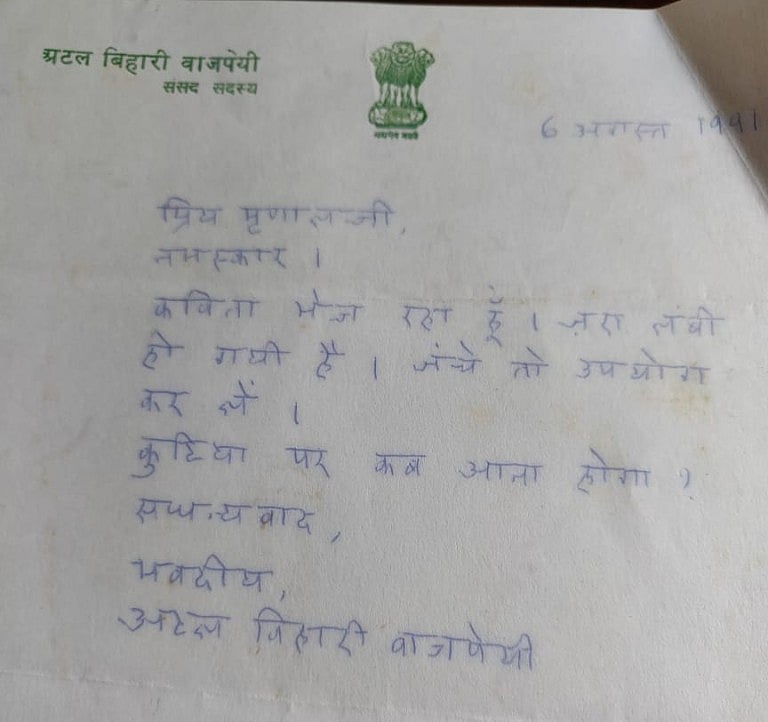 अटल बिहारी वाजपेयी
संसद सदस्य
सत्यमेव जयते
6 अगस्त 1991
प्रिय मृणालजी,
नमस्कार ।
कविता भेज रहा हूँ । ज़रा लंबी
हो गयी है । जंचे तो उपयोग
कर लें ।
कुटिया पर कब आना होगा ?
सधन्यवाद,
भवदीय,
अटल बिहारी वाजपेयी